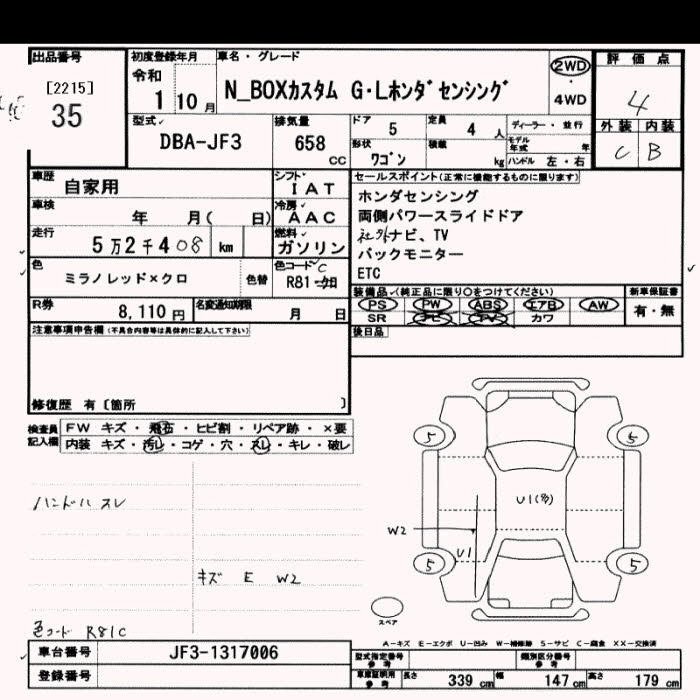 出品番号
[2215]
35
初度登録年月
令和
1 10 月
車名・グレード
N_BOXカスタム G・Lホンダセンシング
2WD
4WD
評価点
4
外装 内装
C B
型式
DBA-JF3
排気量
658
cc
ドア 5
定員 4 人
形状 ワゴン
積載 kg
ディーラー・並行
モデル年式 年
ハンドル 左・右
車歴 自家用
シフト IAT
車検 年 月( 日)
冷房 AAC
走行 5万2千408 km
燃料 ガソリン
色 ミラノレッド×クロ
色替
色コード C
R81
R券 8,110 円
名変通知期限 月 日
セールスポイント(正常に機能するものに限ります)
ホンダセンシング
両側パワースライドドア
社外ナビ、TV
バックモニター
ETC
装備品(純正品に限り○をつけてください)
PS PW ABS エアB AW
SR ナビ TV カワ
新車保証書
有・無
後日品
注意事項申告欄(不具合内容等は具体的に記入して下さい)
修復歴 有〔箇所 〕
検査員記入欄
FW キズ・飛石・ヒビ割・リペア跡・×要
内装 キズ・汚レ・コゲ・穴・スレ・キレ・破レ
ハンドル スレ
キズ E W2
色コード R81C
5
5
U1(多)
W2
U1
5
5
スペア
A-キズ E-エクボ U-凹み W-補修跡 S-サビ C-腐食 XX-交換済
車台番号 JF3-1317006
登録番号
型式指定番号 参考
類別区分番号 参考
車庫証明用 参考
長さ 339 cm
幅 147 cm
高さ 179 cm